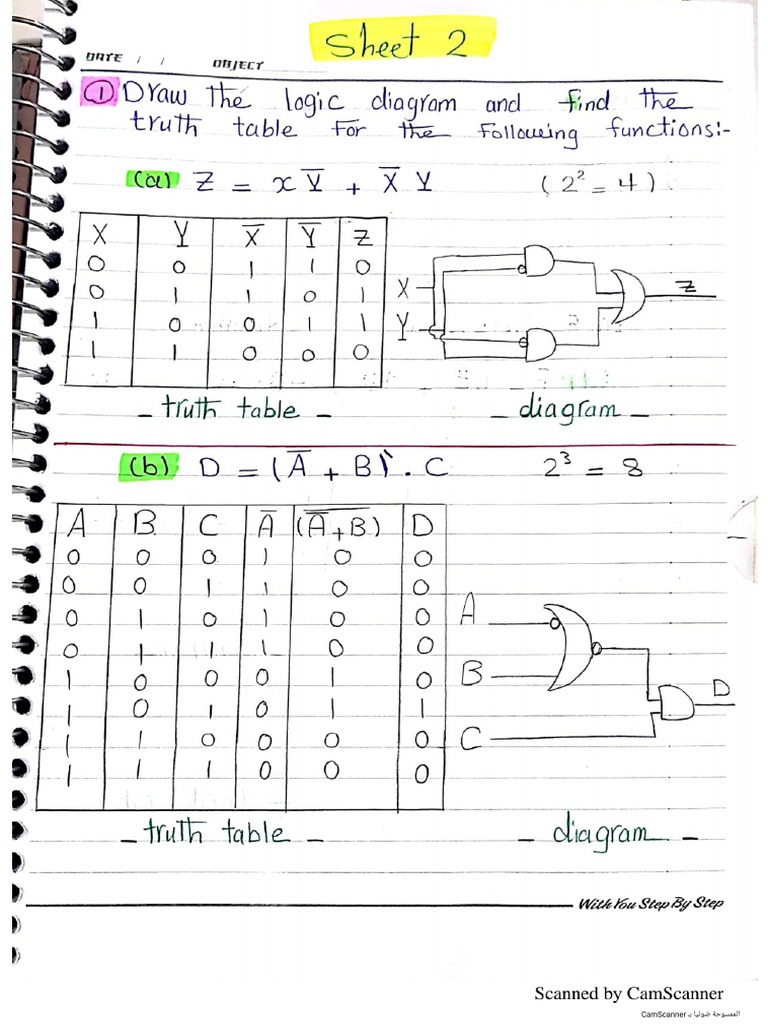 Sheet 2
DATE / / OBJECT
① Draw the logic diagram and find the
truth table For the Following functions:-
(a) Z = x Y̅ + X̅ Y (2² = 4)
X Y X̅ Y̅ Z
0 0 1 1 0
0 1 1 0 1
1 0 0 1 1
1 1 0 0 0
X
Y
Z
- truth table - - diagram -
(b) D = (A̅ + B)` . C 2³ = 8
A B C A̅ (A̅+B)̅ D
0 0 0 1 0 0
0 0 1 1 0 0
0 1 0 1 0 0
0 1 1 1 0 0
1 0 0 0 1 0
1 0 1 0 1 1
1 1 0 0 0 0
1 1 1 0 0 0
A
B
C
D
- truth table - - diagram -
With You Step By Step
Scanned by CamScanner
الممسوحة ضوئيا بـ CamScanner